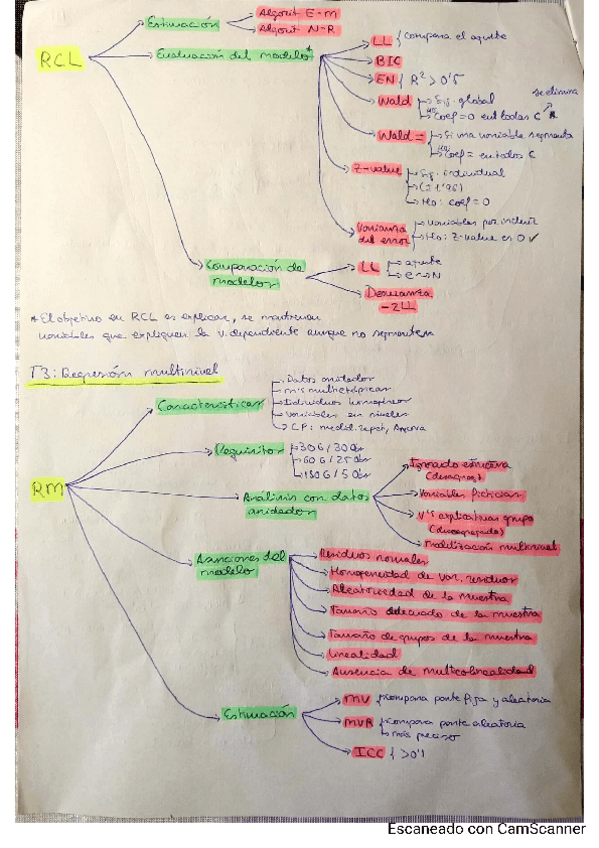 RCL
Estimación
Algorit E-M
Algorit N-R
Evaluación del modelo*
LL { compara el ajuste
BIC
EN { R² > 0'5
se elimina
Wald
Sig. global
Ho: Coef = 0 en todas C
Wald =
Si una variable segmenta
Ho: Coef = en todos C
Z-value
Sig. individual
(±1'96)
Ho: coef = 0
Varianza del error
Variables por incluir
Ho: Z-value es 0 ✓
Comparación de modelos
LL
ajuste
Devianza
-2LL
* El objetivo en RCL es explicar, se mantienen
variables que expliquen la v. dependiente aunque no segmenten
T3: Regresión multinivel
RM
Características
Datos anidados
m's multietápicas
Individuos homogéneos
Variables en niveles
Requisitos
30G / 30 Obs
60G / 25 Obs
150G / 5 Obs
Análisis con datos
anidados
(desagreg)
Variables ficticias
V's explicativas grupo
(desagregado)
Modelización multinivel
Asunciones del
modelo
Residuos normales
Homogeneidad de var. residuos
Aleatoriedad de la muestra
Tamaño adecuado de la muestra
Tamaño de grupos de la muestra
Linealidad
Ausencia de multicolinealidad
Estimación
MV
compara parte fija y aleatoria
MVR
compara parte aleatoria
más preciso
ICC { >0'1
Escaneado con CamScanner